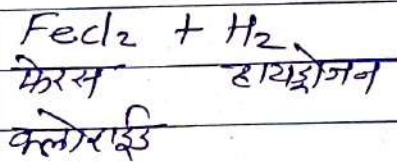 FeCl2 + H2
फेरस हायड्रोजन
क्लोराईड